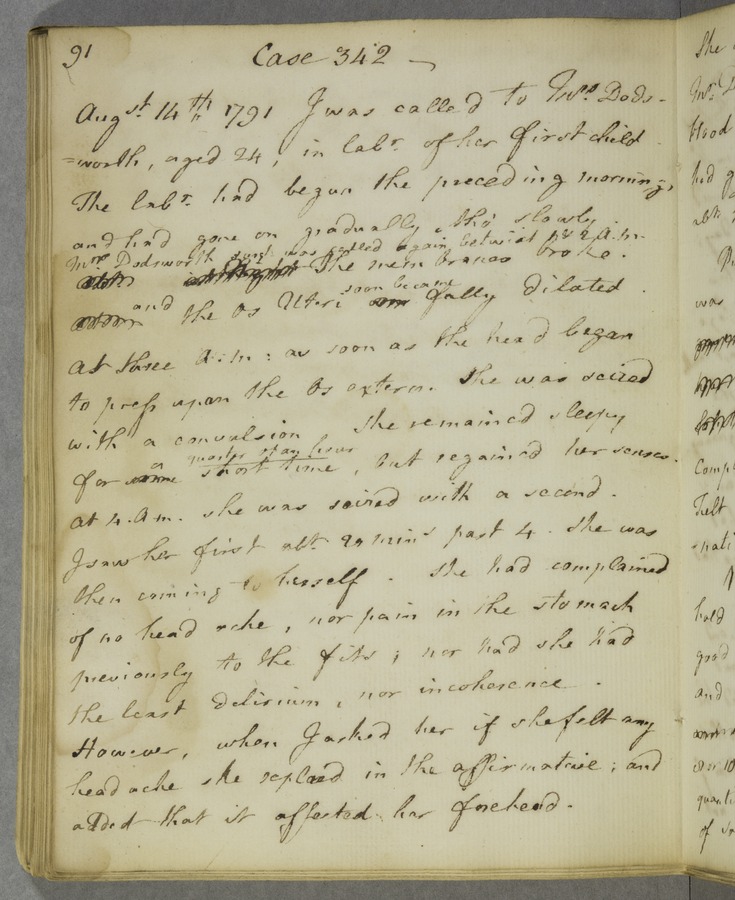 91 Case 342
Augst. 14th 1791 I was called to Mrs. Dods-
=worth, aged 24, in labr. of her first child.
The labr. had begun the preceding morning,
and had gone on gradually, tho' slowly.
Mrs Dodsworth was called again betwixt 1 & 2 A.m.
The membranes broke.
and the Os Uteri soon became fully dilated.
at three A:m: as soon as the head began
to press upon the Os extern. She was seized
with a convulsion She remained sleepy
quarter of an hour
for a short time, but regained her senses.
at 4. A.m. she was seized with a second.
I saw her first abt. 20 mins past 4. She was
then coming to herself. She had complained
of no head ache, nor pain in the stomach
previously to the fits; nor had she had
the least delirium, nor incoherence.
However, when I asked her if she felt any
head ache she replied in the affirmative; and
added that it affected her forehead.
She
Mrs
blood
had g
abt.
was
Comp
Felt
-nati
held
grad
and
quanti
of